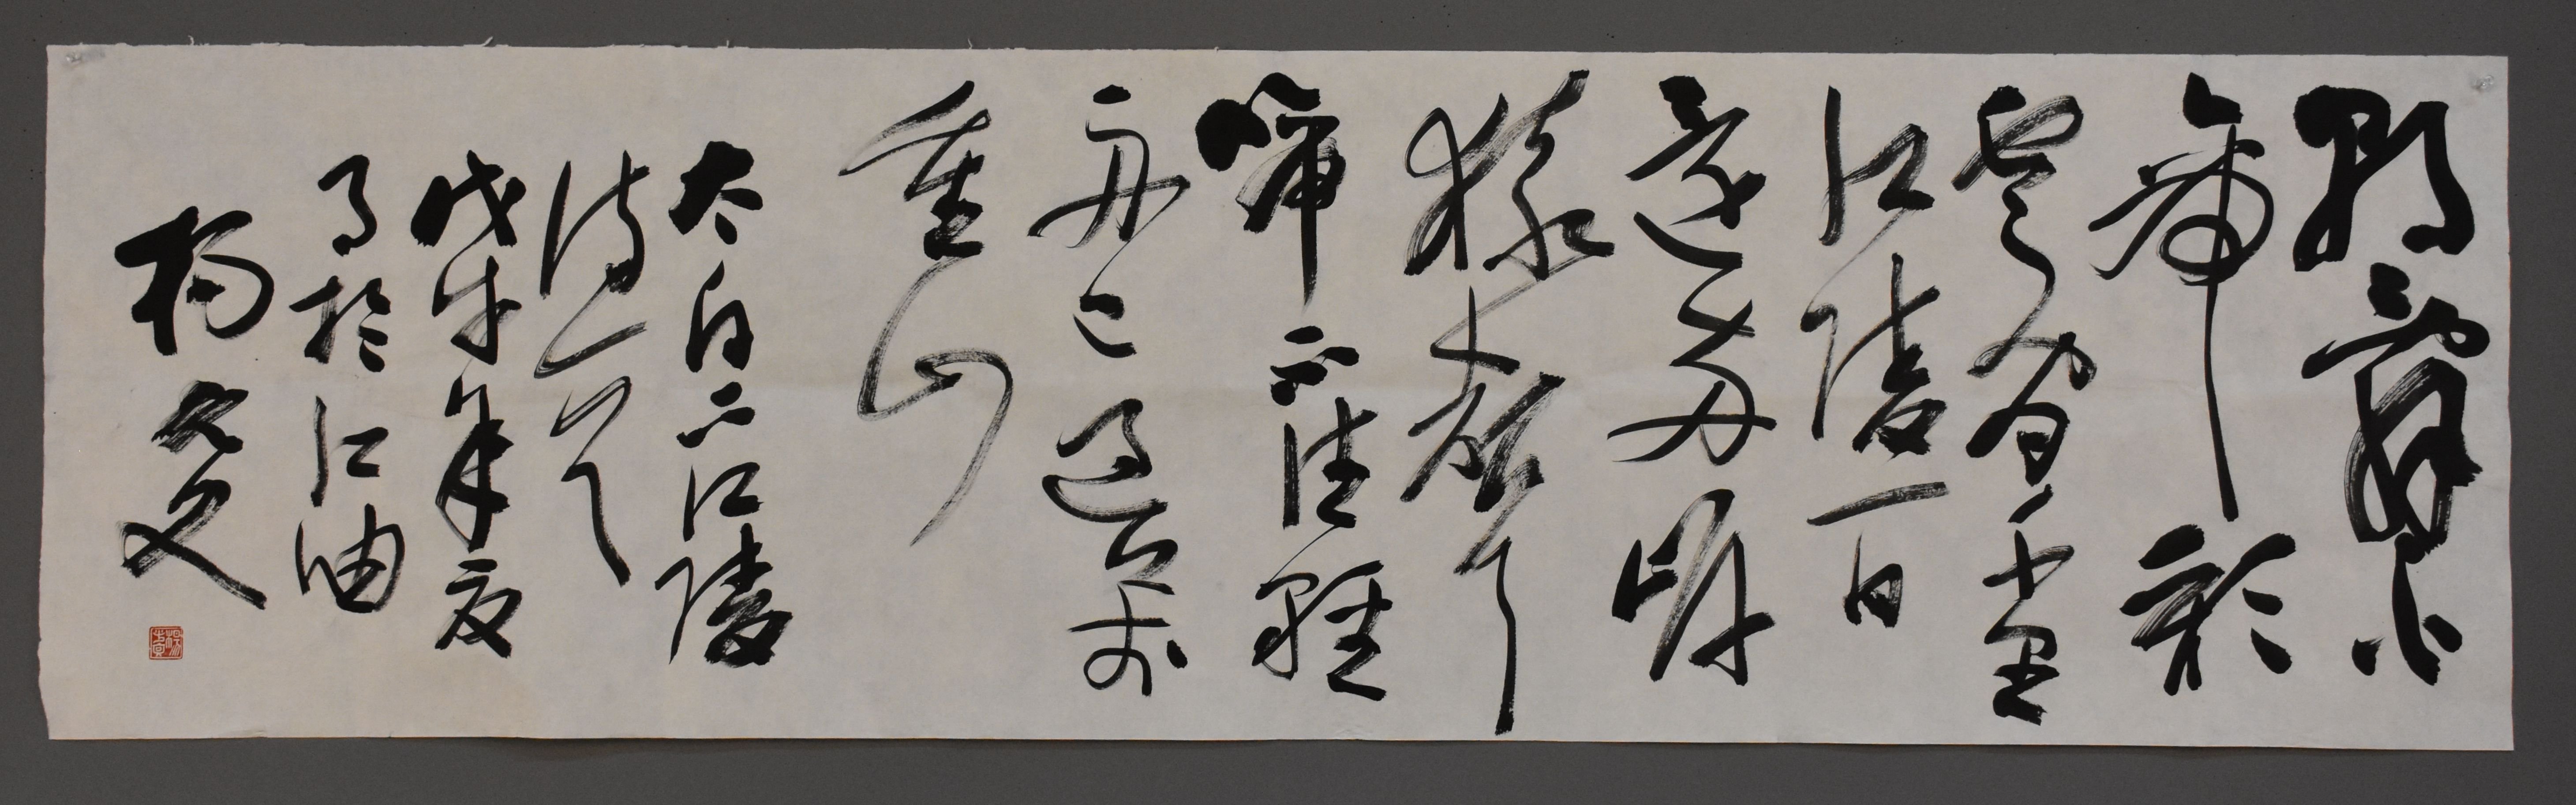 朝辭白
帝彩
雲間千里
江陵一日
還兩岸
猿聲
啼不住輕
舟已過萬
重山
太白下江陵
詩一首
戊午年夏
書於江油
楊